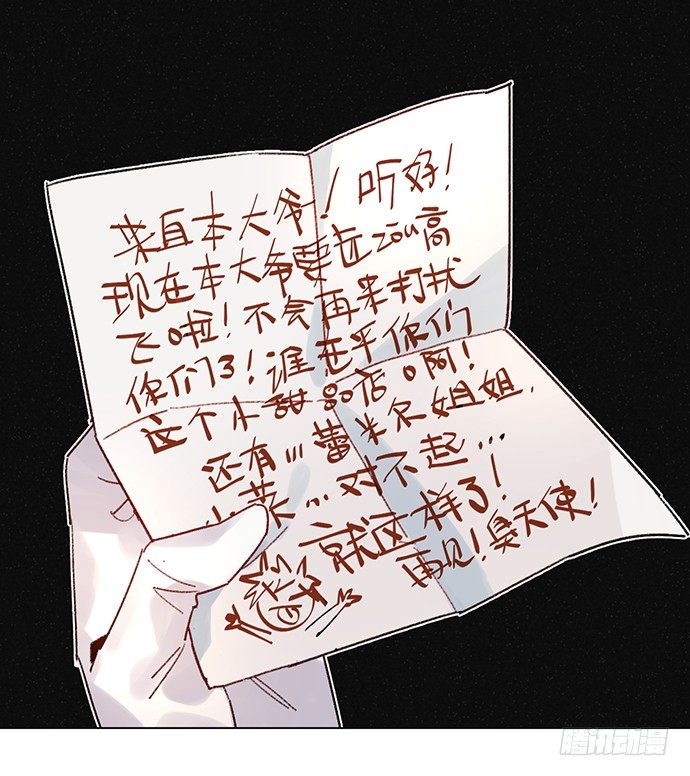 菜自本大爷！听好！
现在本大爷要远zou高
飞啦！不会再来打扰
你们了！谁在乎你们
这个小甜品店0啊！
还有，，，蕾米尔姐姐，
小菜，，，对不起...
就这样了！
再见！臭天使！
腾讯动漫